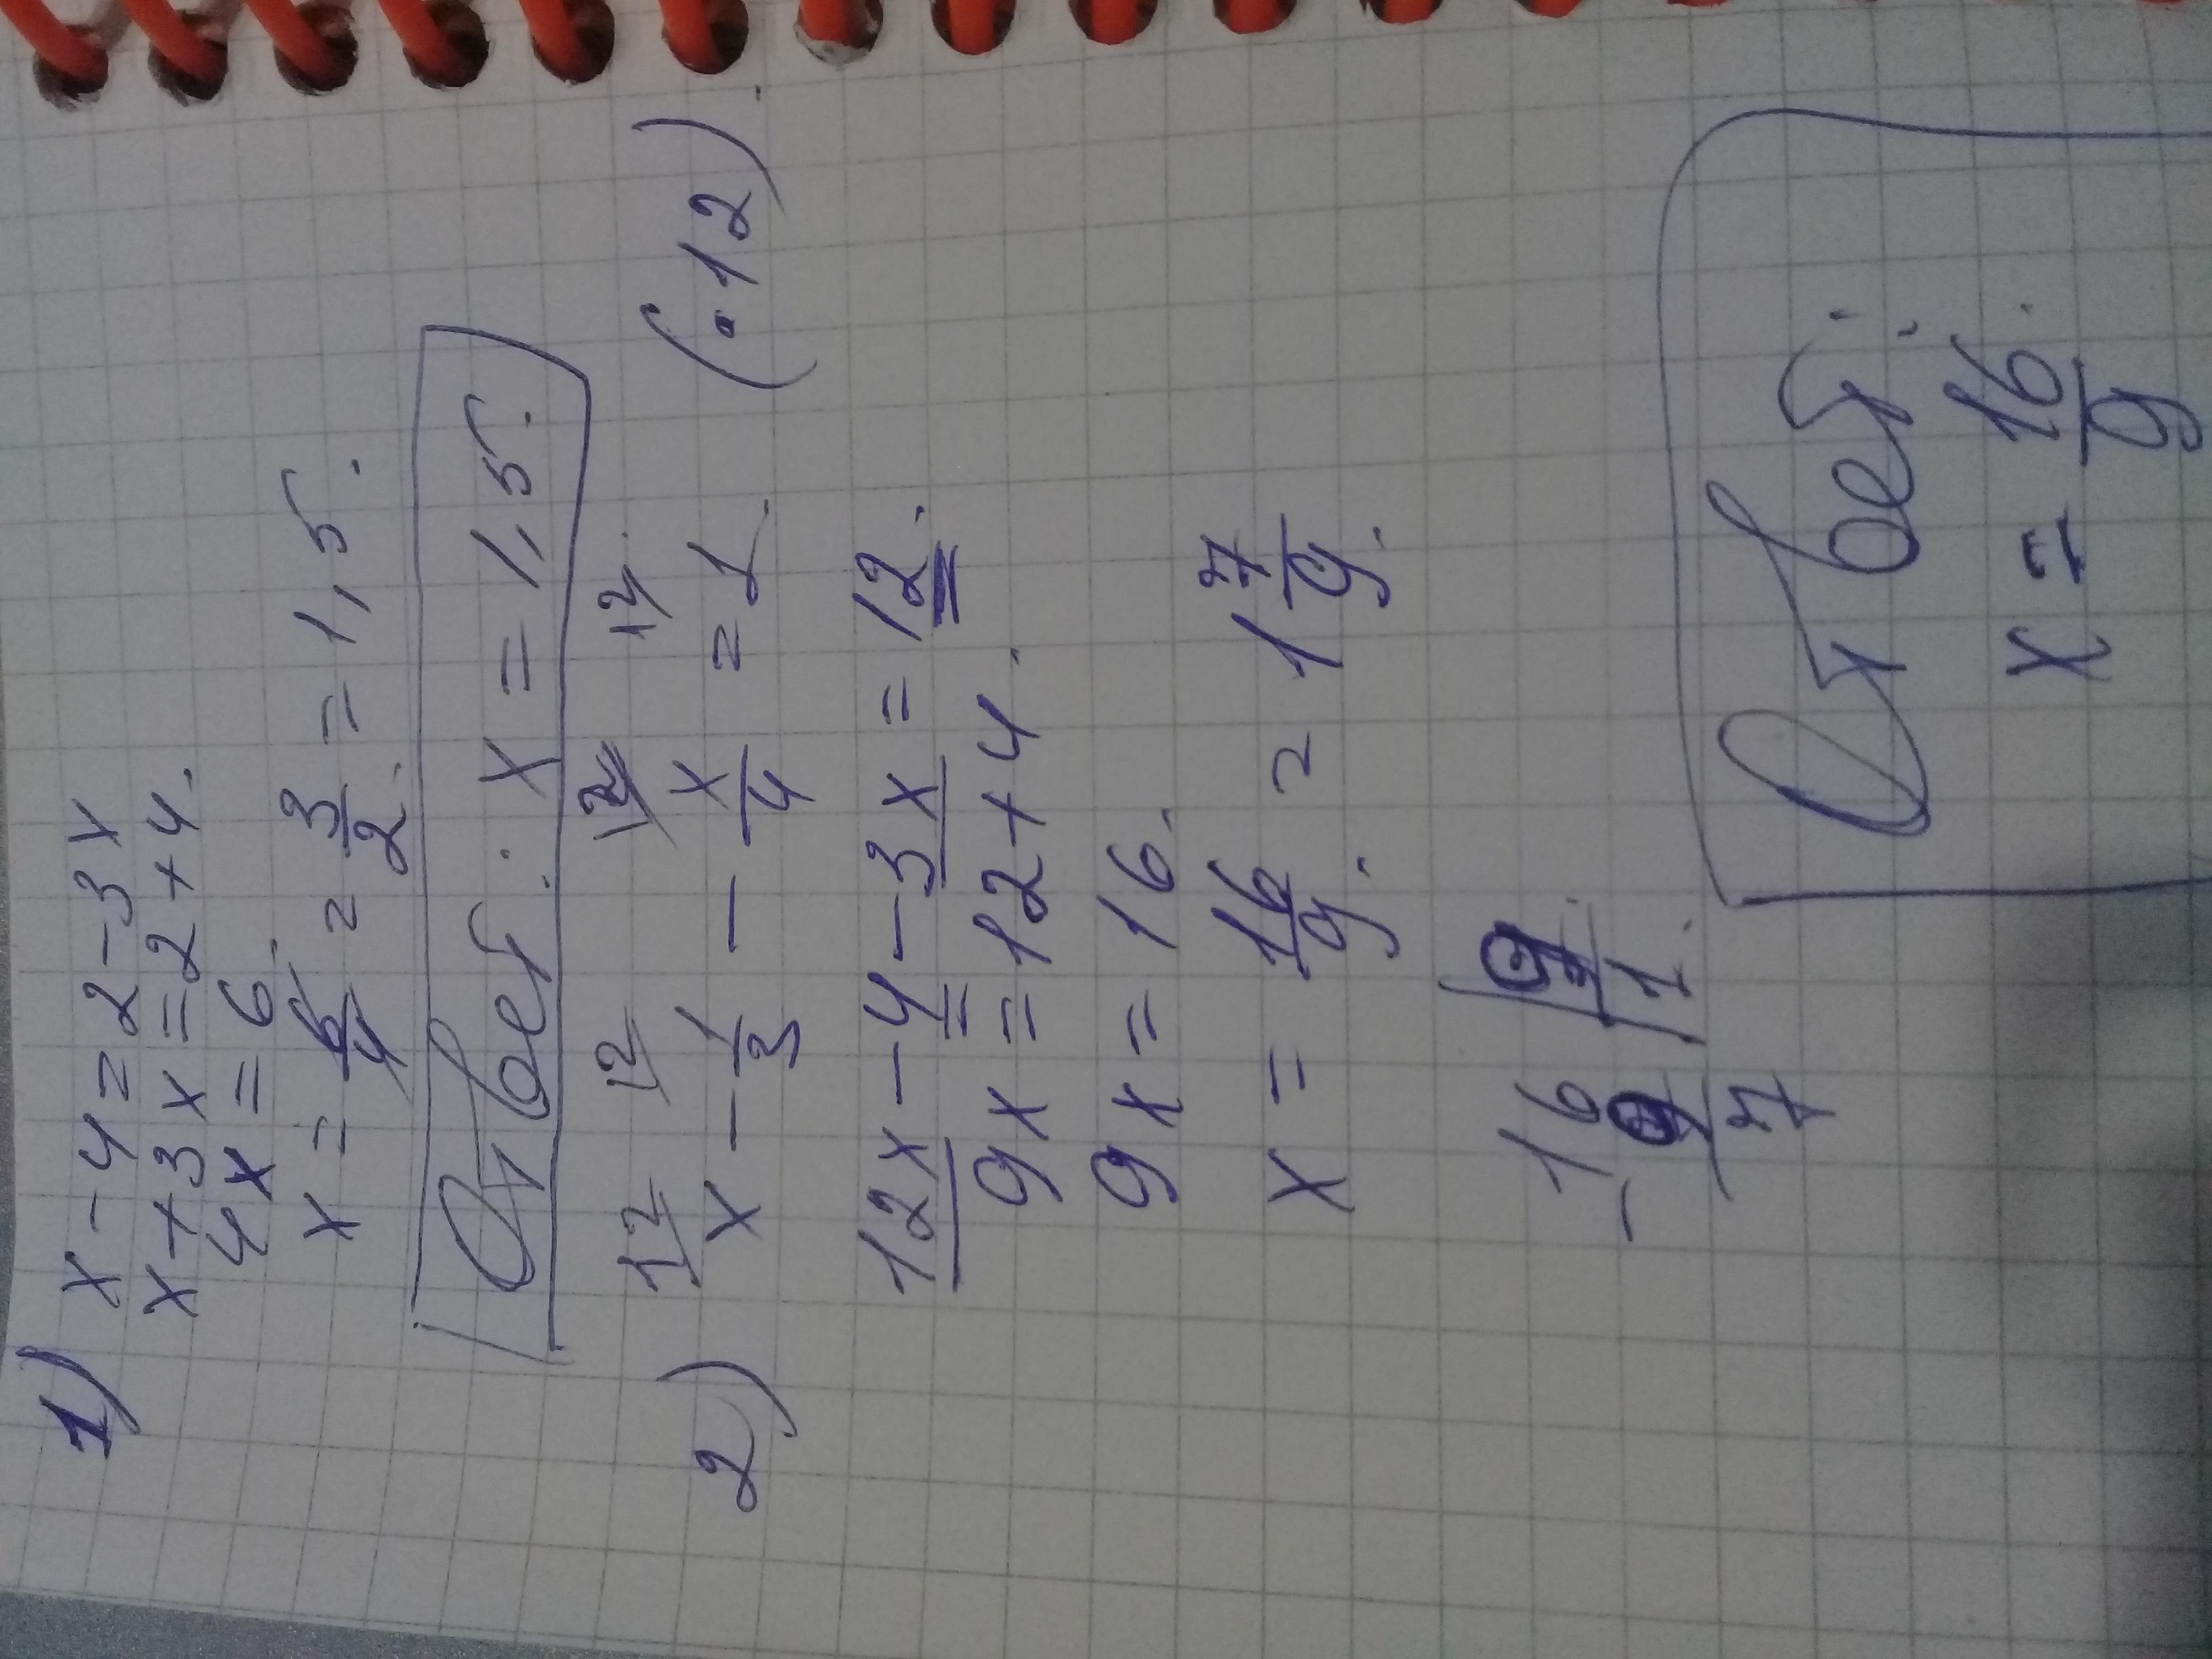 1) x - 4 = 2 - 3x
x + 3x = 2 + 4.
4x = 6.
x = 6/4 = 3/2. = 1,5.
Ответ: x = 1,5.
12 12 12 12
2) x - 1/3 - x/4 = 1. (·12).
12x - 4 - 3x = 12.
9x = 12 + 4.
9x = 16.
x = 16/9. = 1 7/9.
-16 | 9
9 | 1.
7
Ответ:
x = 16/9.